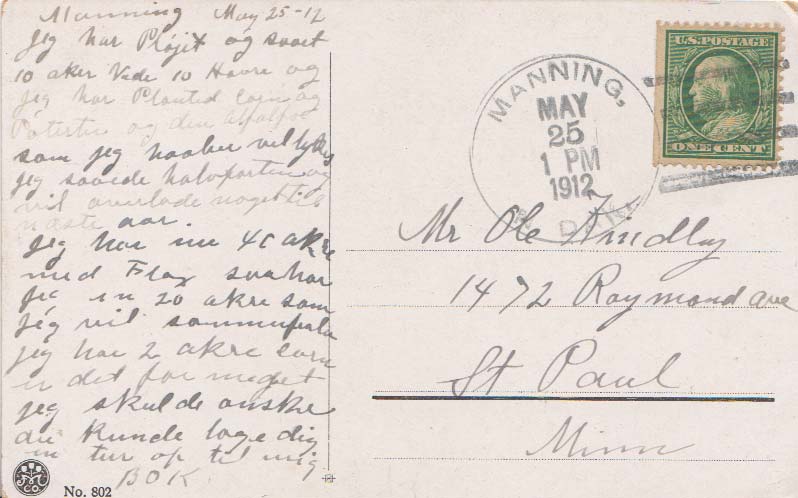 Manning May 25-12
Jeg har Pløjet og saaet
10 aker Vede 10 Havre og
jeg har Planted Corn og
og den
som jeg haaber vel lykes
jeg saaede halvparten og
vil overlade noget til
næste aar.
Jeg har nu 40 akre
med Flax saa har
jeg en 20 akre som
jeg vil
jeg har 2 akre corn
er det for meget
jeg skulde ønske
du kunde tage dig
en tur op til mig
BOK
No. 802
MANNING,
MAY
25
1 PM
1912
N. DAK.
U.S. POSTAGE
ONE CENT
Mr Ole Tindlay
1472 Raymond ave
St Paul
Minn